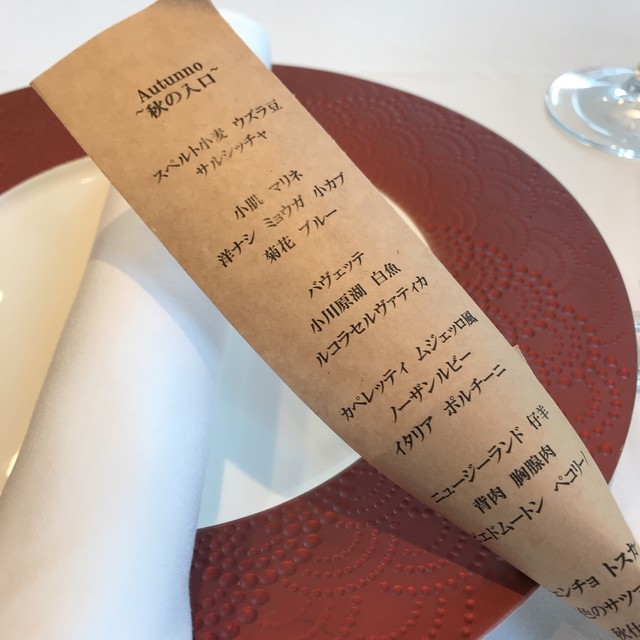 Autunno
~秋の入口~
スペルト小麦 ウズラ豆
サルシッチャ
小肌 マリネ
洋ナシ ミョウガ 小カブ
菊花 ブルー
バヴェッテ
小川原湖 白魚
ルコラセルヴァティカ
カペレッティ ムジェッロ風
ノーザンルビー
イタリア ポルチーニ
ニュージーランド 仔羊
背肉 胸腺肉
ェドムートン ペコリー
ンチョ トスカ
のサツ